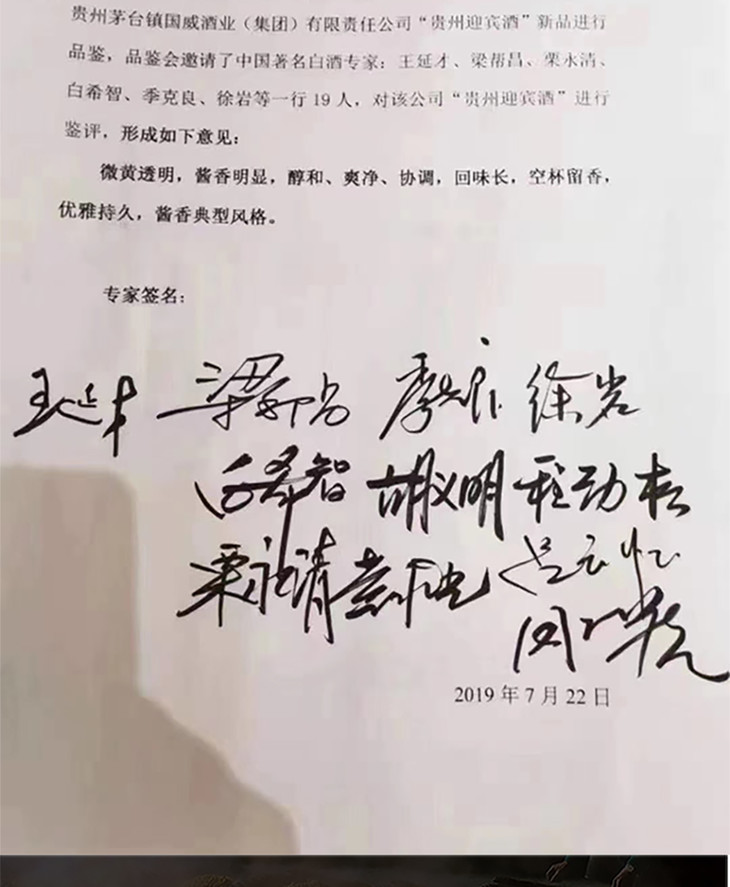 贵州茅台镇国威酒业（集团）有限责任公司“贵州迎宾酒”新品进行
品鉴，品鉴会邀请了中国著名白酒专家：王延才、梁邦昌、栗永清、
白希智、季克良、徐岩等一行19人，对该公司“贵州迎宾酒”进行
鉴评，形成如下意见：
微黄透明，酱香明显，醇和、爽净、协调，回味长，空杯留香，
优雅持久，酱香典型风格。
专家签名：
王延才 梁邦昌 季克良 徐岩
白希智 胡义明 程劲松
栗永清 吕云怀
2019年7月22日